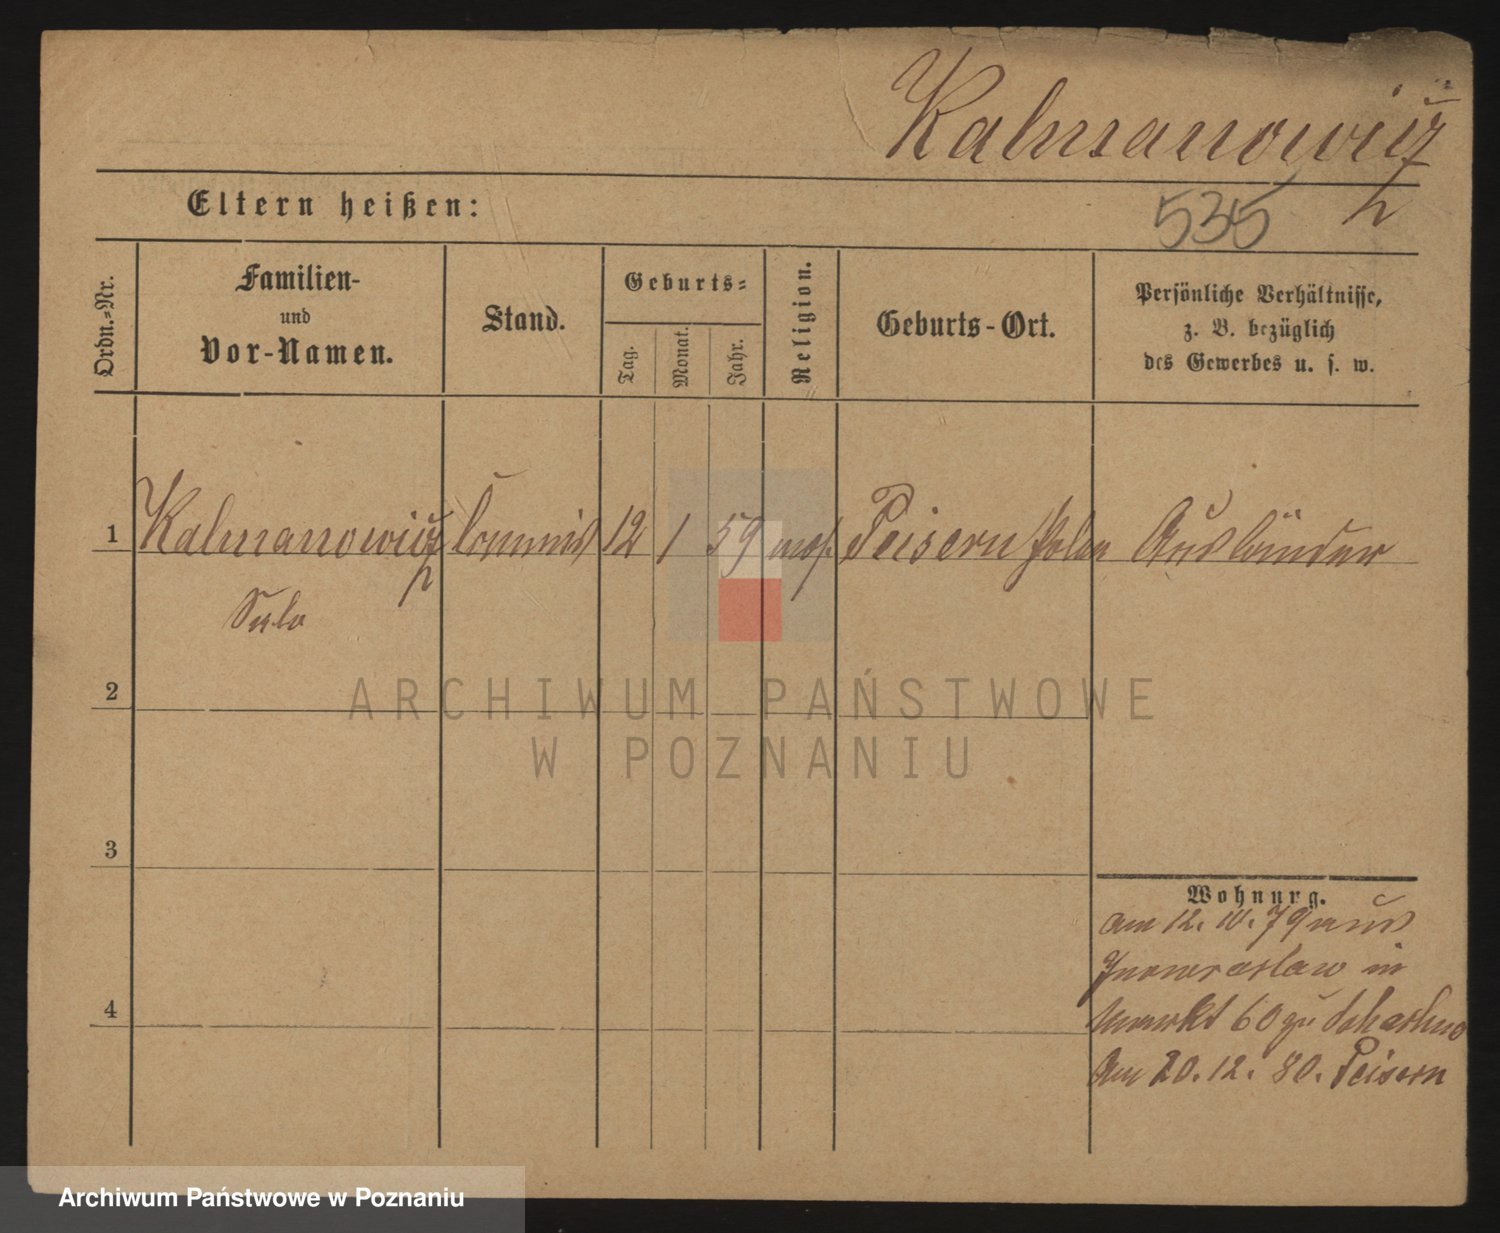 Kalmanowicz
Eltern heißen:
535
Ordn.-Nr.
Familien-
und
Vor-Namen.
Stand.
Geburts-
Tag.
Monat.
Jahr.
Religion.
Geburts-Ort.
Persönliche Verhältnisse,
z. B. bezüglich
des Gewerbes u. s. w.
1 Kalmanowicz Commis 12 1 59 mos. Peisern Polen Ausländer
2
3
4
Wohnung.
am 12. 10. 79 aus
Inowraslaw in
Markt 60 zu
Am 20. 12. 80. Peisern
ARCHIWUM PAŃSTWOWE
W POZNANIU
Archiwum Państwowe w Poznaniu